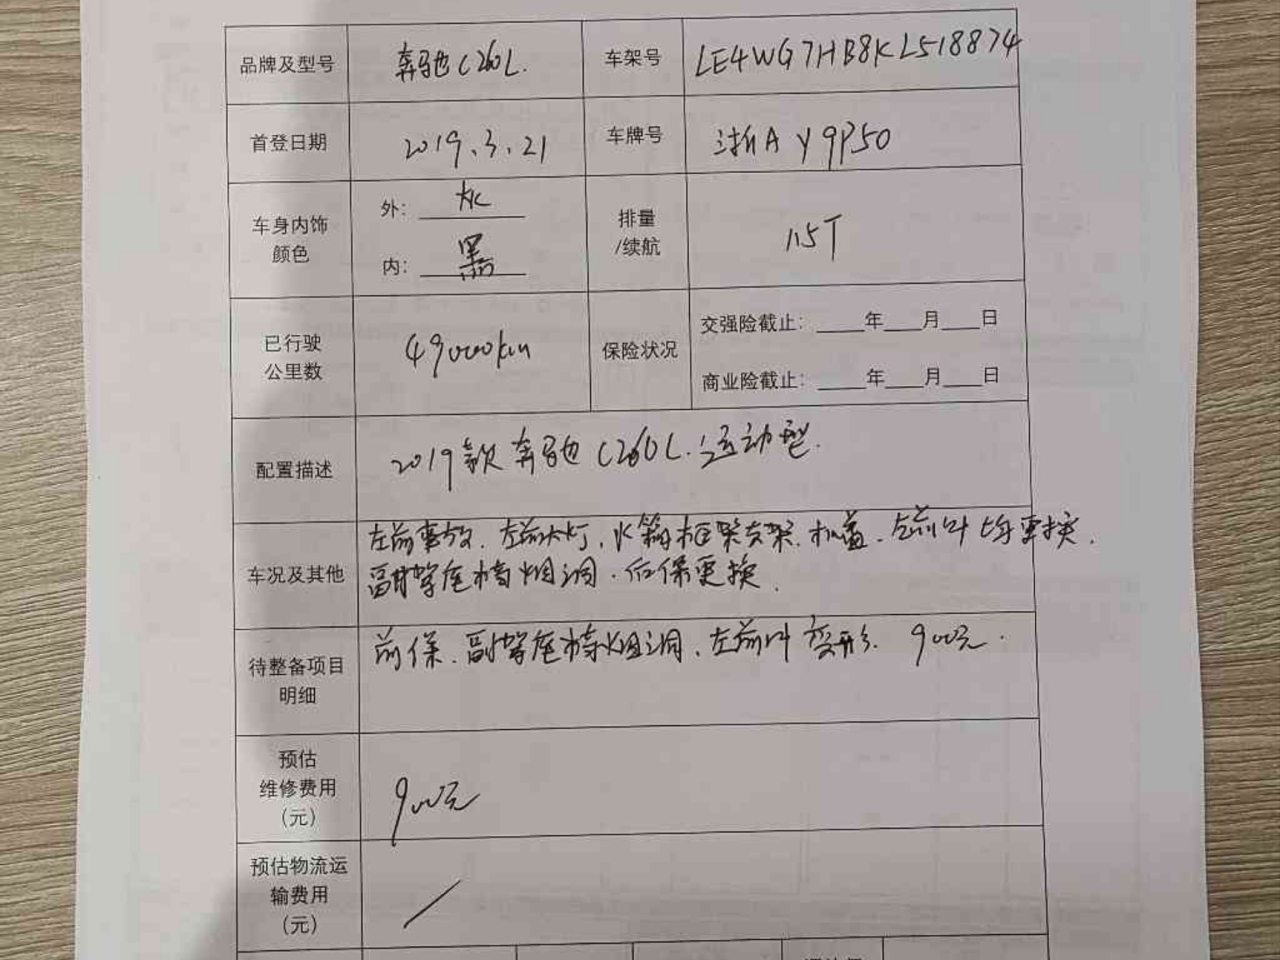 品牌及型号 奔驰C260L. 车架号 LE4WG7HB8KL518874
首登日期 2019.3.21 车牌号 浙A Y9P50
车身内饰
颜色
外: 灰
内: 黑
排量
/续航
1.5T
已行驶
公里数
49000km
保险状况
交强险截止: ____年____月____日
商业险截止: ____年____月____日
配置描述 2019款奔驰C260L.运动型.
车况及其他
左前事故.左前大灯,水箱框架支架.机盖.左前叶 更换.
副驾座椅烟洞.后保更换.
待整备项目
明细
前保.副驾座椅烟洞.左前叶变形. 900元.
预估
维修费用
(元)
900元
预估物流运
输费用
(元)
/